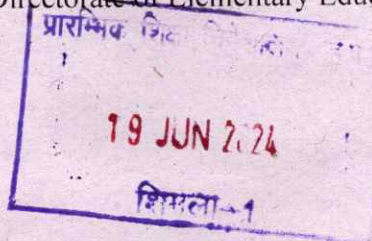 Directorate of Elementary Educ
प्रारम्भिक
19 JUN 2024
शिमला-1